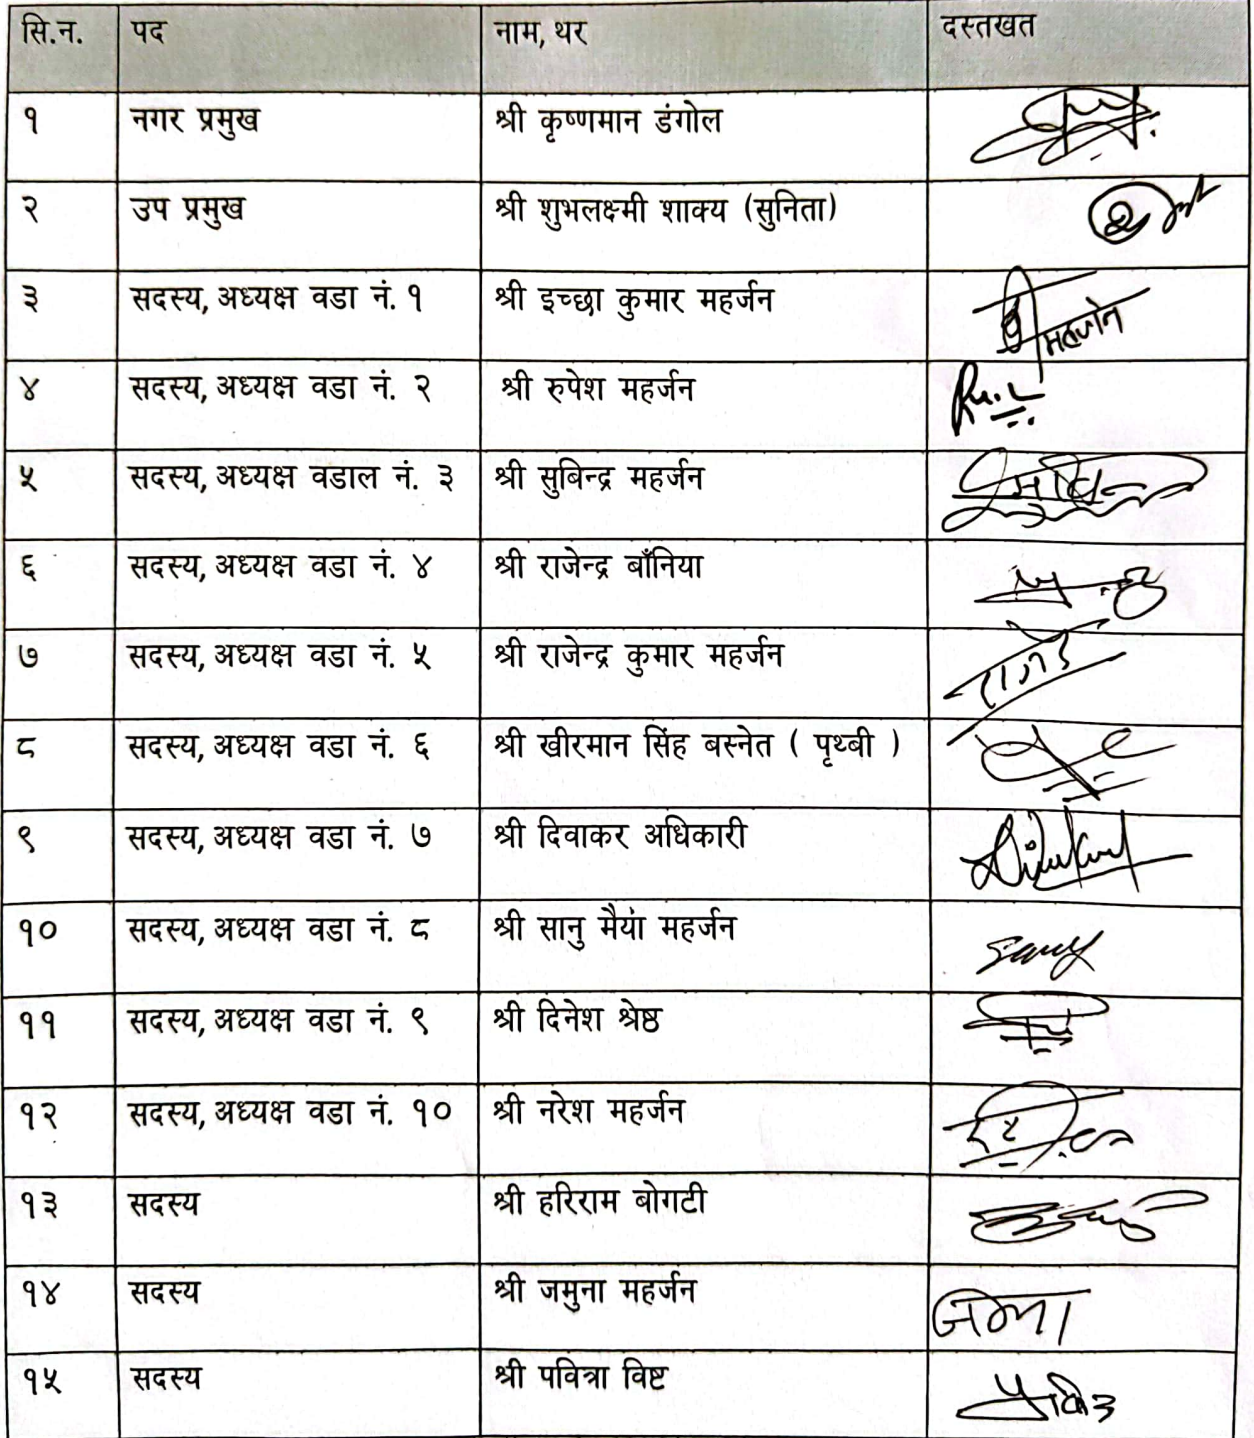 सि.न. पद नाम, थर दस्तखत
१ नगर प्रमुख श्री कृष्णमान डंगोल
२ उप प्रमुख श्री शुभलक्ष्मी शाक्य (सुनिता)
३ सदस्य, अध्यक्ष वडा नं. १ श्री इच्छा कुमार महर्जन महर्जन
४ सदस्य, अध्यक्ष वडा नं. २ श्री रुपेश महर्जन
५ सदस्य, अध्यक्ष वडाल नं. ३ श्री सुबिन्द्र महर्जन
६ सदस्य, अध्यक्ष वडा नं. ४ श्री राजेन्द्र बाँनिया
७ सदस्य, अध्यक्ष वडा नं. ५ श्री राजेन्द्र कुमार महर्जन
८ सदस्य, अध्यक्ष वडा नं. ६ श्री खीरमान सिंह बस्नेत ( पृथ्बी )
९ सदस्य, अध्यक्ष वडा नं. ७ श्री दिवाकर अधिकारी
१० सदस्य, अध्यक्ष वडा नं. ८ श्री सानु मैयां महर्जन
११ सदस्य, अध्यक्ष वडा नं. ९ श्री दिनेश श्रेष्ठ
१२ सदस्य, अध्यक्ष वडा नं. १० श्री नरेश महर्जन
१३ सदस्य श्री हरिराम बोगटी
१४ सदस्य श्री जमुना महर्जन
१५ सदस्य श्री पवित्रा विष्ट